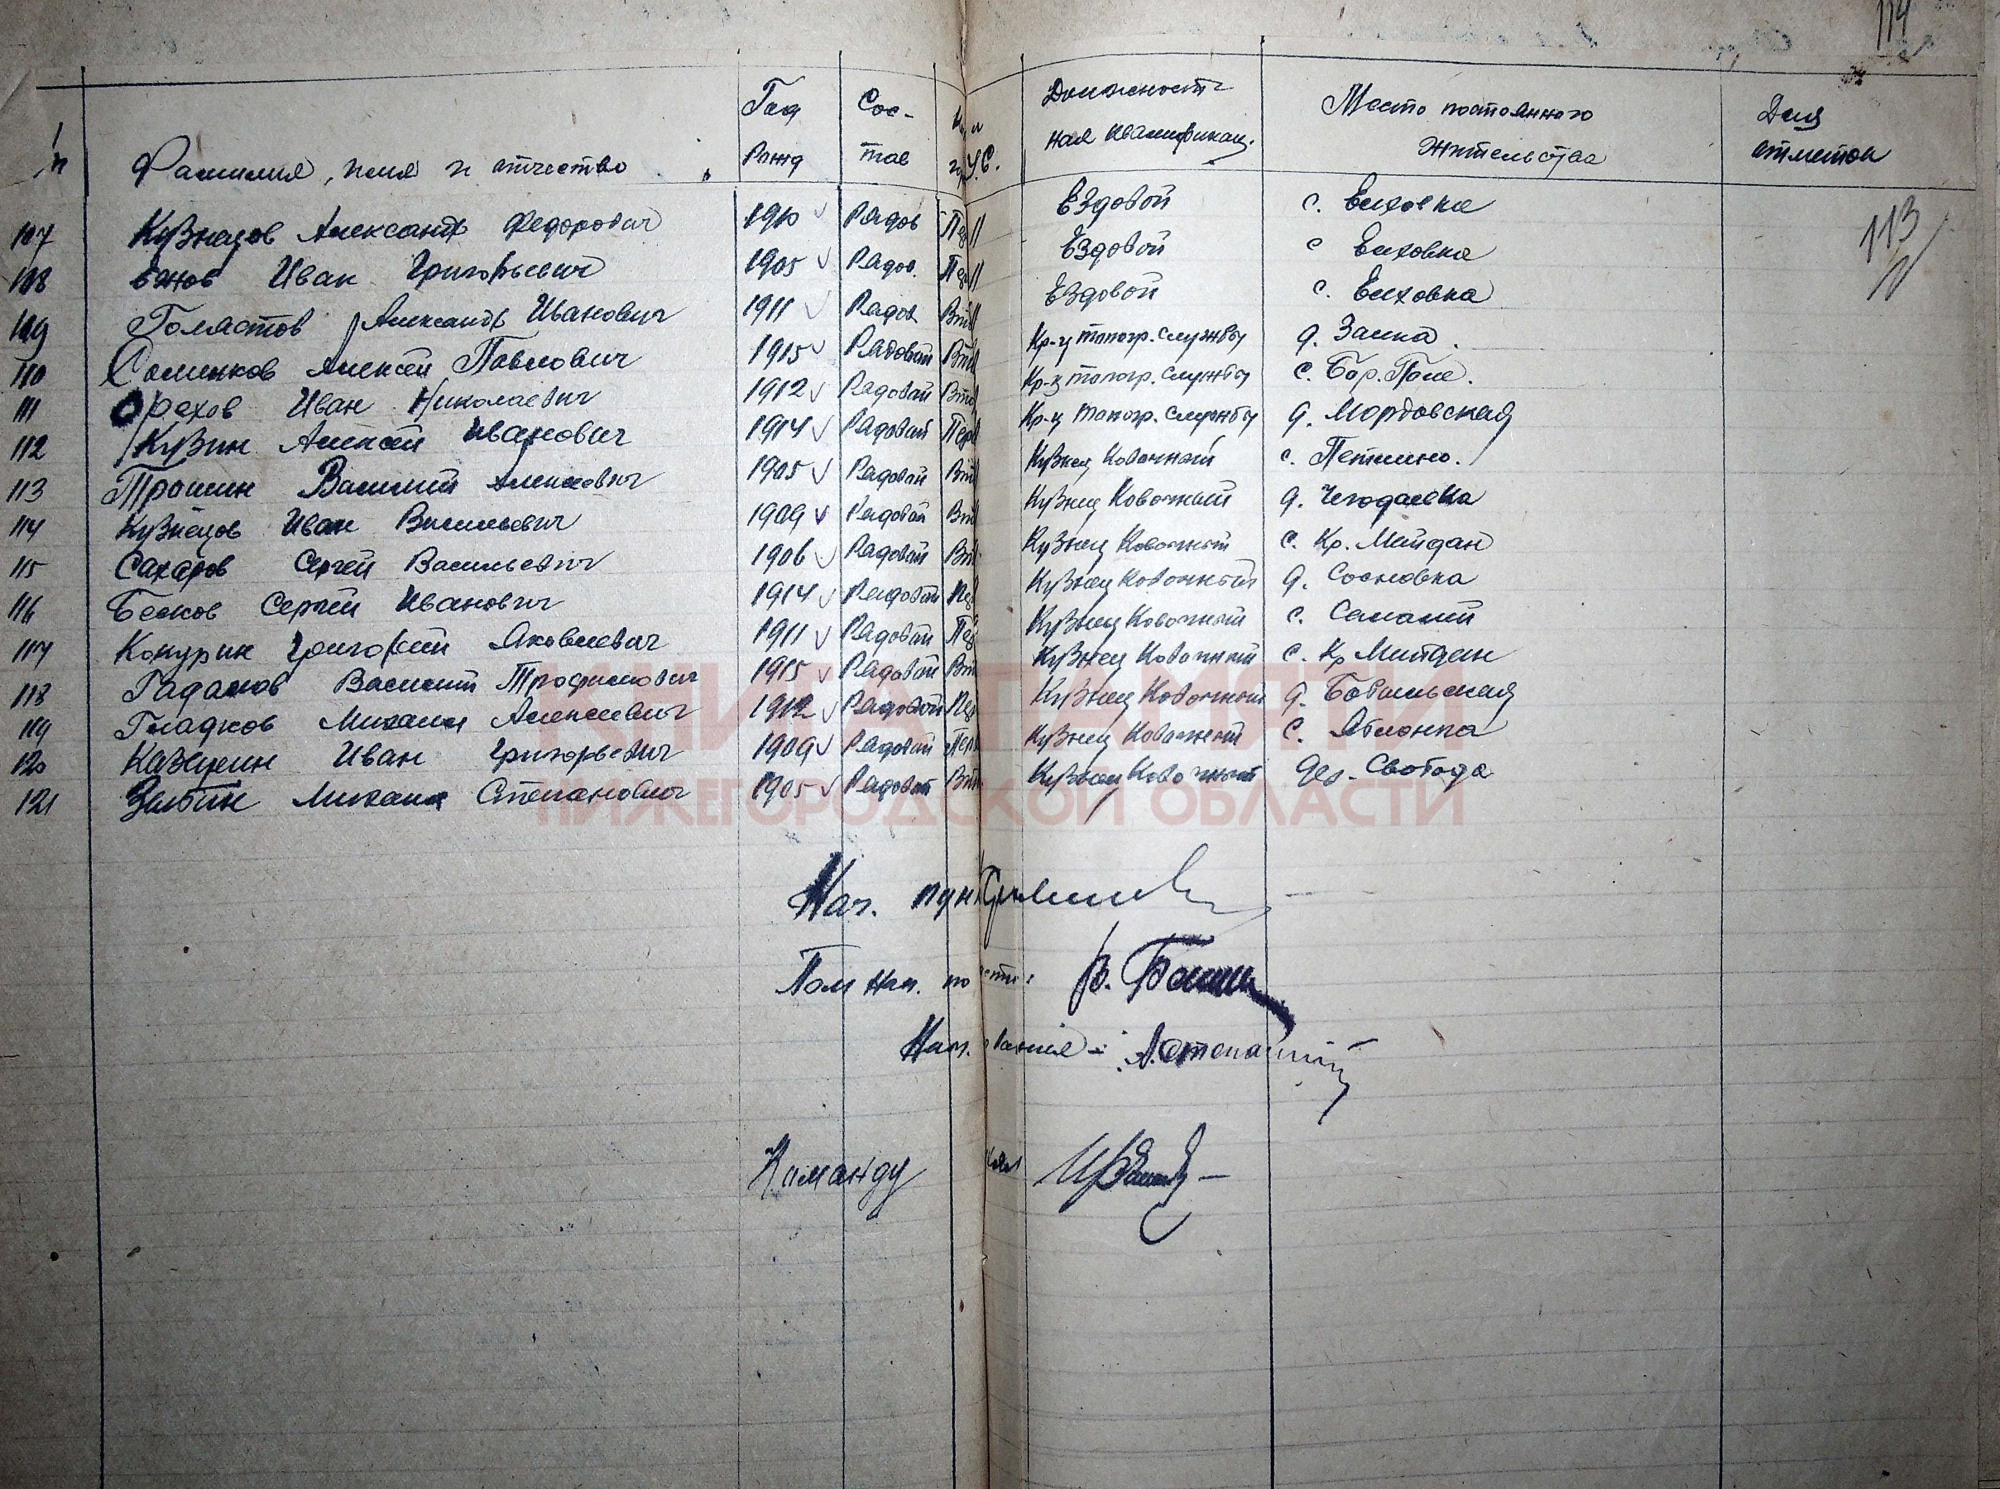 114
п/п Фамилия, имя и отчество Год рожд Сос-тав У.С. Должностная квалификац. Место постоянного жительства Для отметок
113
107 Кузнецов Александр Федорович 1910 Рядов Пер II Ездовой с. Елховка
108 Иван Григорьевич 1905 Рядов. Пер II Ездовой с Елховка
109 Александр Иванович 1911 Рядов Вт II Ездовой с. Елховка
110 Алексей Павлович 1915 Рядовой Вто Кр-ц топогр. службы д. Заика.
111 Орехов Иван Николаевич 1912 Рядовой Вто Кр-ц топогр. службы с. Бор. Поле.
112 Кузин Алексей Иванович 1914 Рядовой Перв Кр-ц топогр. службы д. Мордовская
113 Трошин Василий Алексеевич 1905 Рядовой Вт Кузнец Ковочный с. Петлино.
114 Кузнецов Иван Васильевич 1909 Рядовой Вт Кузнец Ковочный д. Чегодаевка
115 Сахаров Сергей Васильевич 1906 Рядовой Вт Кузнец Ковочный с. Кр. Майдан
116 Бесков Сергей Иванович 1914 Рядовой Пер Кузнец Ковочный д. Сосновка
117 Кокурин Григорий Яковлевич 1911 Рядовой Пер Кузнец Ковочный с.
118 Гадалов Василий Трофимович 1915 Рядовой Вт Кузнец Ковочный с. Кр Майдан
119 Гладков Михаил Алексеевич 1912 Рядовой Пер Кузнец Ковочный д.
120 Казарин Иван Григорьевич 1909 Рядовой Пер Кузнец Ковочный с.
121 Зыбин Михаил Степанович 1905 Рядовой Вт Кузнец Ковочный дер. Свобода
КНИГА ПАМЯТИ
НИЖЕГОРОДСКОЙ ОБЛАСТИ
Нач. пун
Пом нач. по
Нач.
Команду